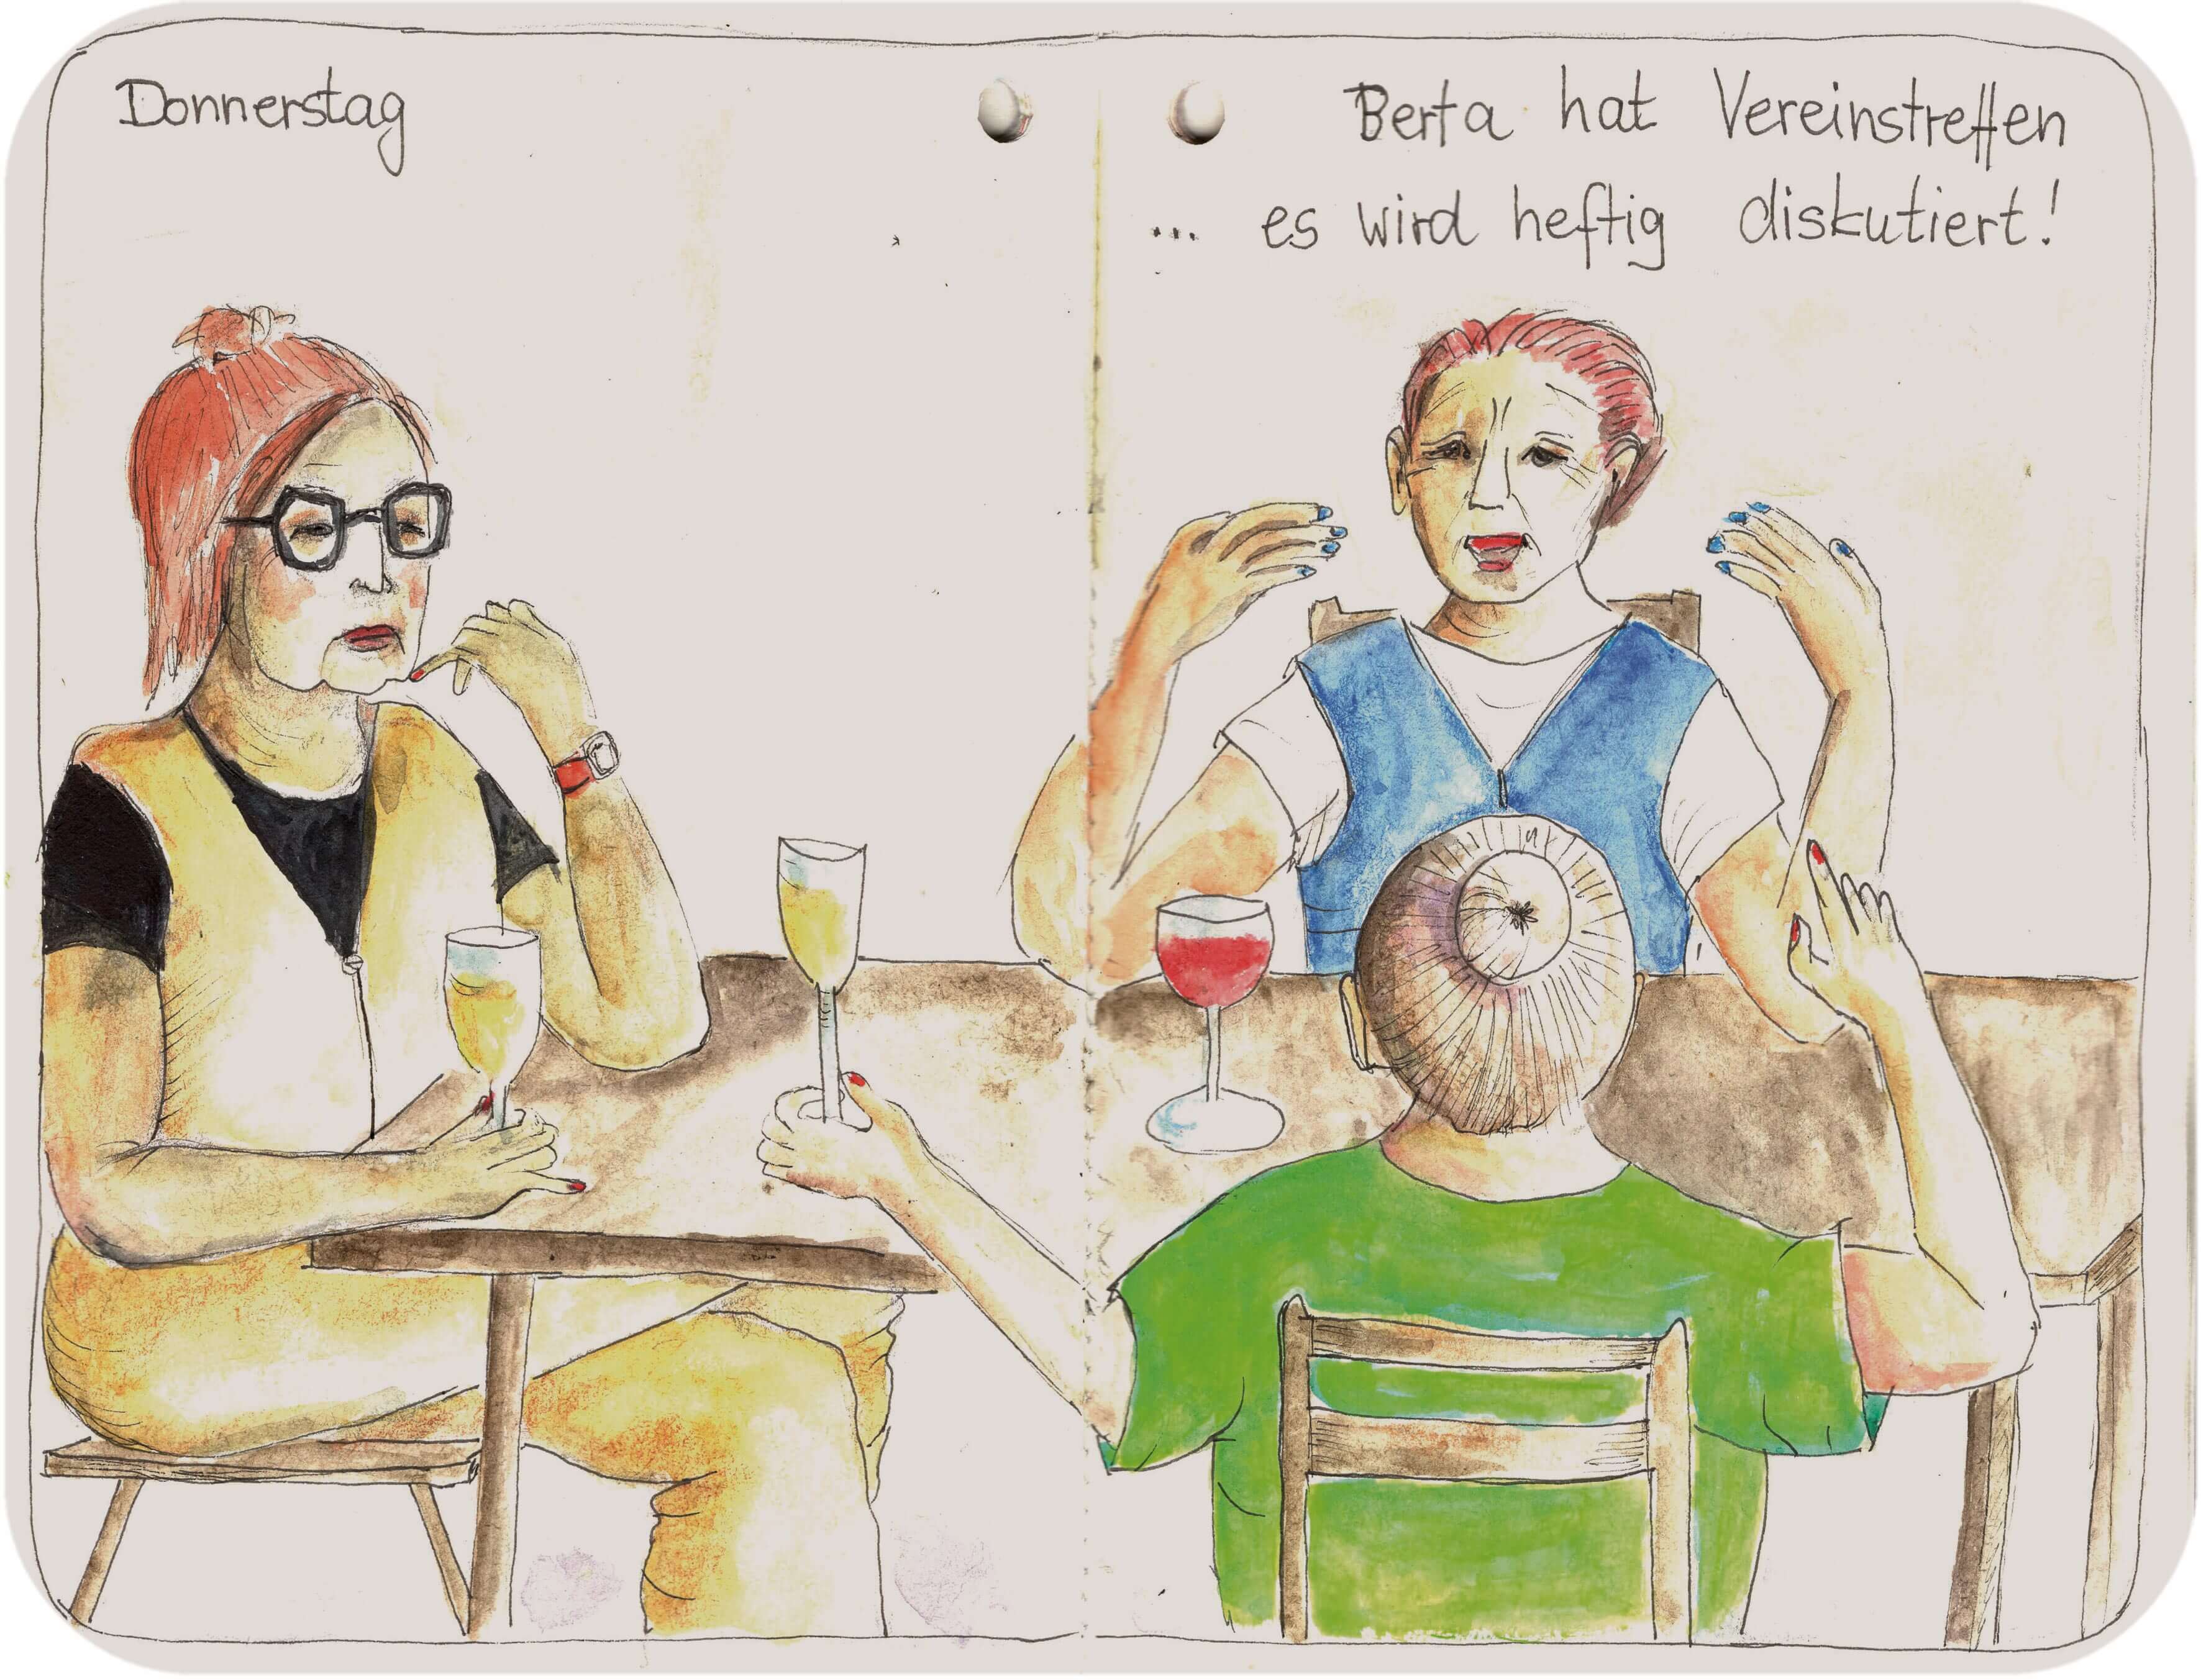 Donnerstag
Berta hat Vereinstreffen
... es wird heftig diskutiert!